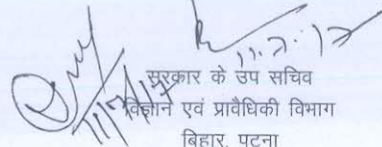 11.7.17
11/7/17
सरकार के उप सचिव
विज्ञान एवं प्रावैधिकी विभाग
बिहार, पटना